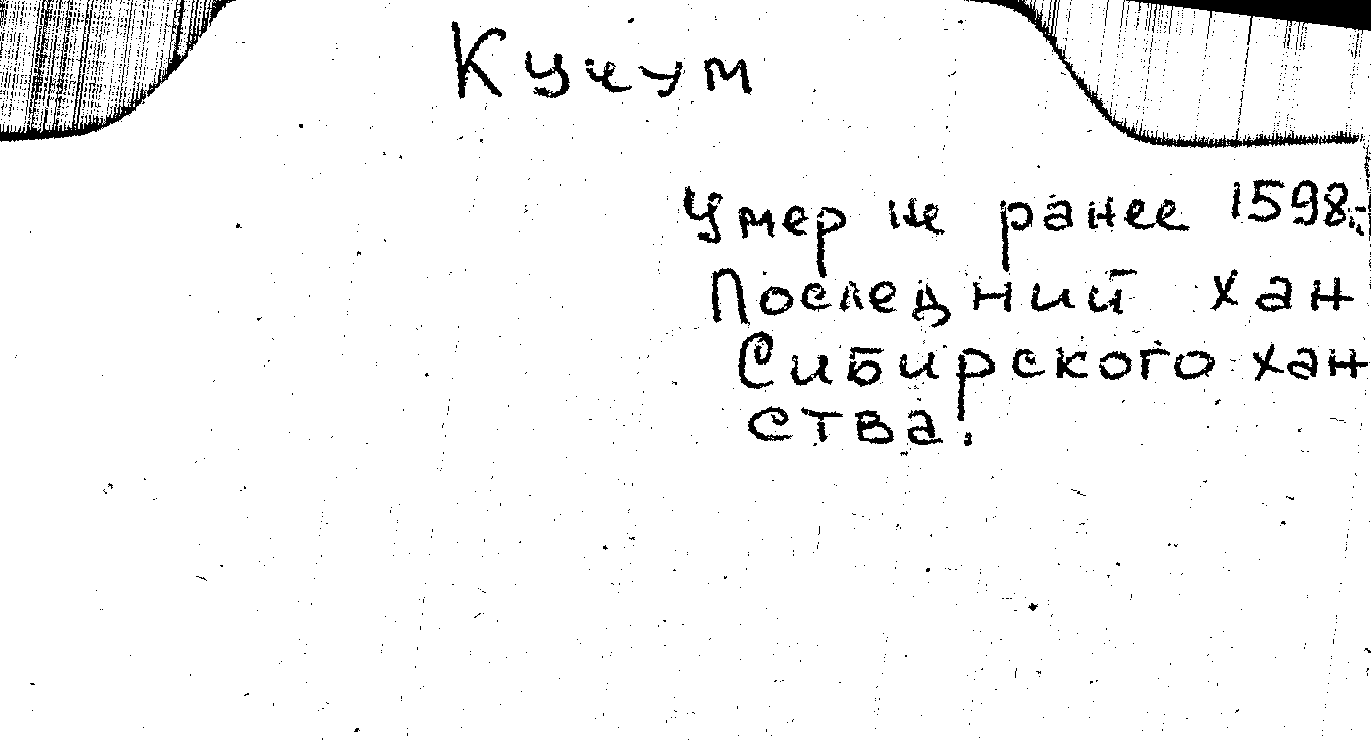 Кучум
Умер не ранее 1598.
Последний хан
Сибирского хан
ства.